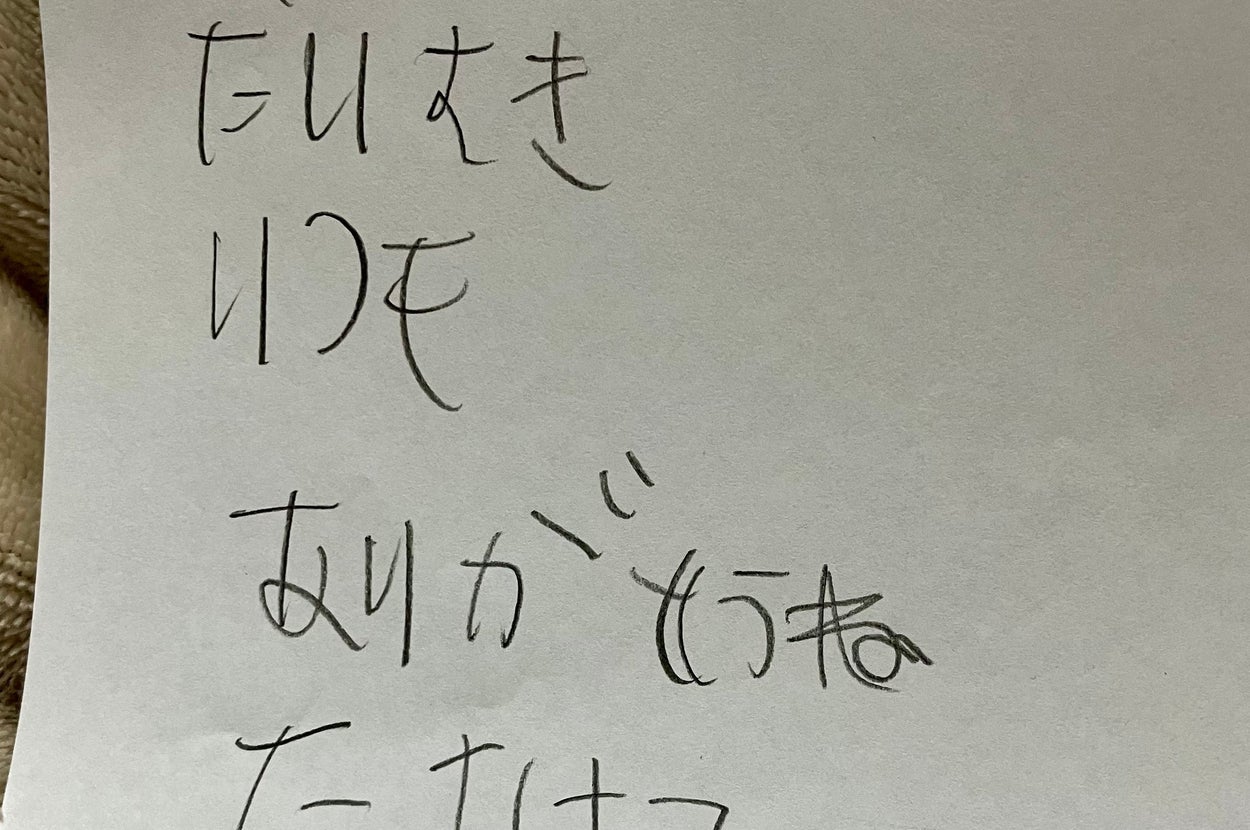 だいすき
いつも
ありがとうね